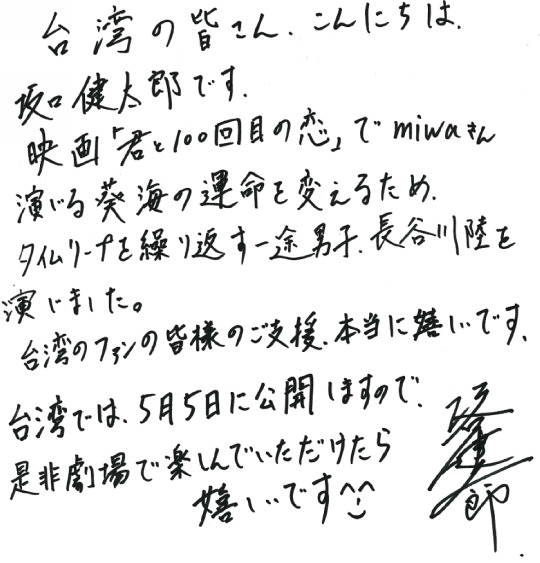 台湾の皆さん、こんにちは、
坂口健太郎です、
映画「君と100回目の恋」でmiwaさん
演じる葵海の運命を変えるため、
タイムリープを繰り返す一途男子、長谷川陸を
演じました。
台湾のファンの皆様のご支援、本当に嬉しいです、
台湾では、5月5日に公開しますので、
是非劇場で楽しんでいただけたら
嬉しいです^^